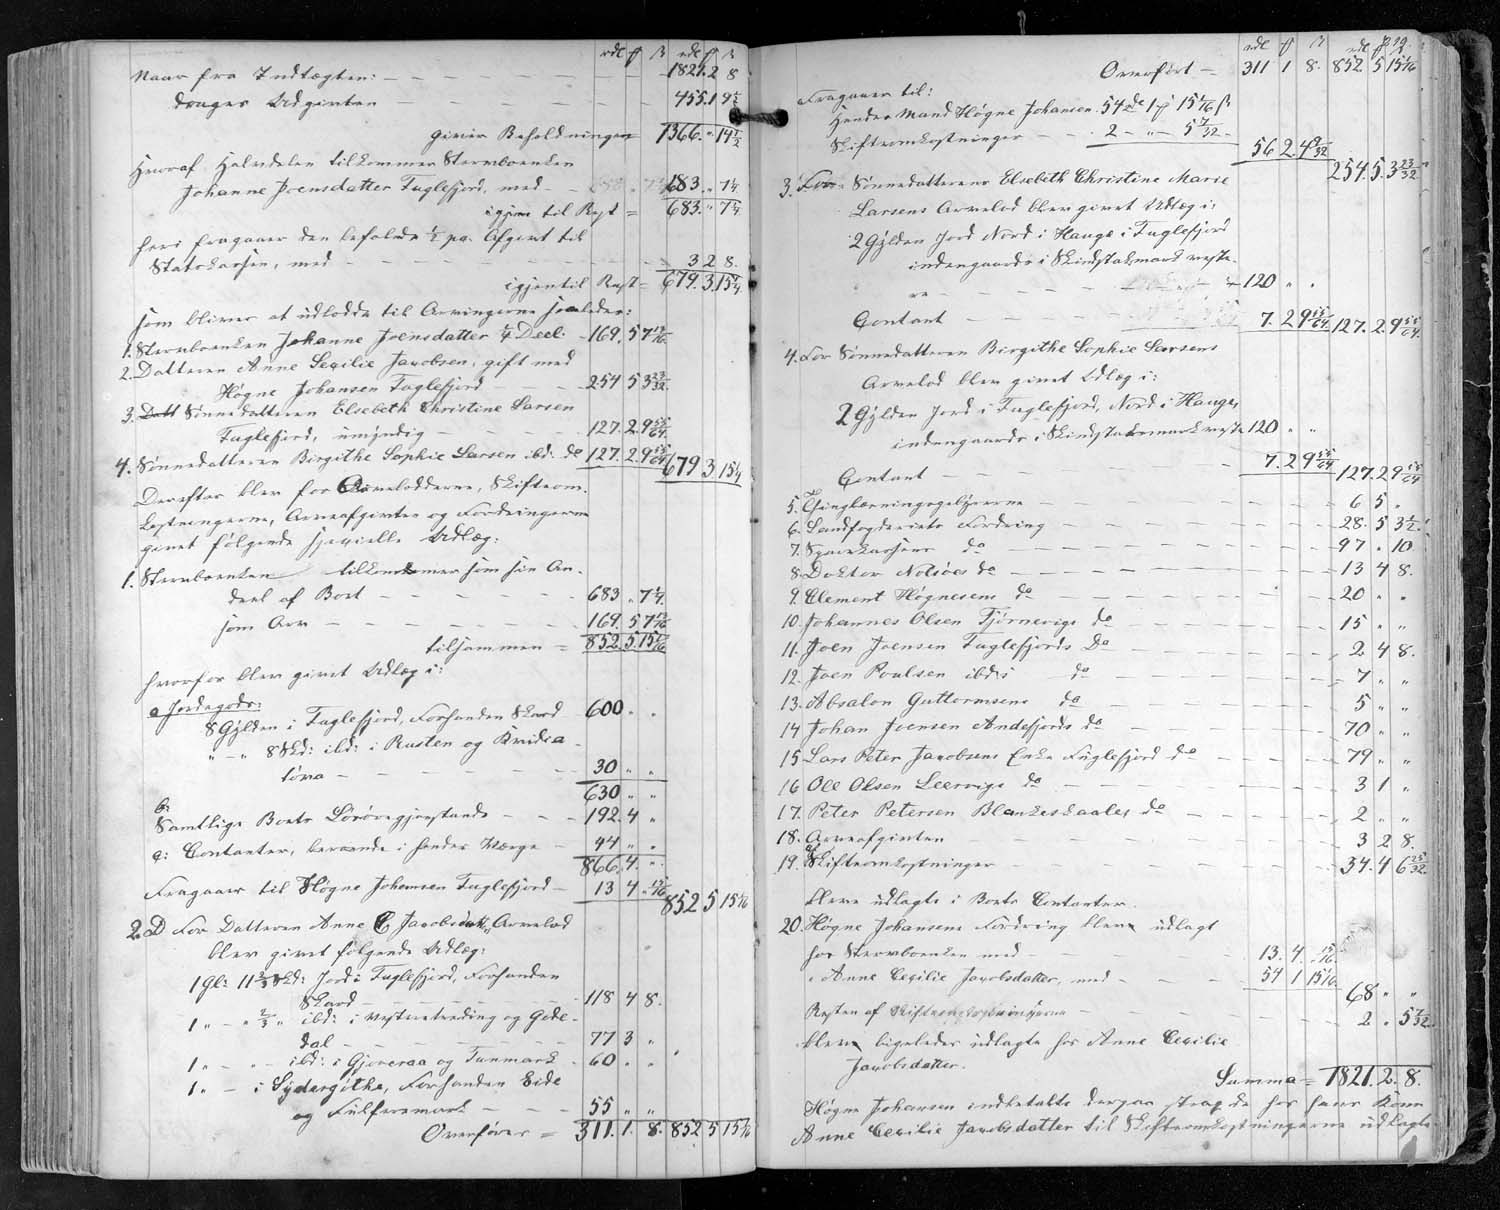 rdl ₰ ß rdl ₰ ß
Naar fra Indtægten: 1821. 2 8
drages Udgivten 455. 1 9 1/2
giver Beholdningen 1366. " 14 1/2
hvoraf Halvdelen tilkommer Sterboenken
Johanne Joensdatter Fuglefjord, med 683 " 7 1/4
igjen til Rest = 683. " 7 1/4
heri fragaaer den befalede 1/2 pc. Afgivt til
Statskassen, med 3 2 8.
igjen til Rest = 679. 3. 15 1/4
som bliver at udlodde til Arvingerne saaledes:
1. Sterboenken Johanne Joensdatter 1/4 Deel 169. 5 7 13/16
2. Datteren Anne Secilie Jacobsen, gift med
Høgne Johansen Fuglefjord 254 5 3 23/32
3. Datt Sønnedatteren Elsebeth Christine Larsen
Fuglefjord, umyndig 127. 2. 9 55/64
4. Sønnedatteren Birgithe Sophie Larsen ibd: do 127. 2. 9 55/64 679 3 15 1/4
Derefter blev for Arvelodderne, Skifteom-
kostningerne, Arveafgivten og Fordringerne
givet følgende specielle Udlæg:
1. Sterboenken tilkommer som sin An-
deel af Boet 683 " 7 1/4
som Arv 169. 5 7 13/16
tilsammen = 852. 5. 15 1/16
hvorfor blev givet Udlæg i:
a Jordegods:
8 Gylden i Fuglefjord, Forhanden Skard 600 " "
" — " 8 Skd: ibd: i Rusten og Kvidia-
tøva 30 " "
630 " "
b.
Samtlige Boets Løsøregjenstande 192. 4 "
c: Contanter, beroende i hendes Værge 44 " "
866. 4. "
Fragaaer til Høgne Johansen Fuglefjord 13 4 " 15/16 852 5 15 1/16
2. D For Datteren Anne C Jacobsens Arvelod
blev givet følgende Udlæg:
1 Gl: 11 2/3 Skd: Jord i Fuglefjord, Forhanden
Skard 118 4 8.
1 " — " 2/3 " ibd: i Vestretreding og Gede-
dal 77 3 "
1 " — " — ibd: i Gjoveraa og Tunmark 60 " "
1 " — i Sydergøthe, Forhanden Eide
og Fulsersmark 55 " "
Overføres = 311. 1. 8. 852 5 15 1/16
rdl ₰ ß rdl ₰ ß
Overført 311 1 8. 852. 5 15 1/16
Fragaaer til:
Hendes Mand Høgne Johansen 54 rd 1 ₰ 15 1/16 ß
Skifteomkostninger 2 — " — 5 7/32
56 2. 4 9/32 254. 5. 3 23/32
3. For Sønnedatteren Elsebeth Christine Marie
Larsens Arvelod blev givet Udlæg i:
2 Gylden Jord Nord i Hauge i Fuglefjord
indengaards i Skindstaksmark veste-
re 120 " "
Contant 7. 2 9 55/64 127. 2. 9 55/64
4. For Sønnedatteren Birgithe Sophie Larsens
Arvelod blev givet Udlæg i:
2 Gylden Jord i Fuglefjord, Nord i Hauge,
indengaards i Skindstaksmark veste 120 " "
Contant 7. 2 9 55/64 127. 2 9 55/64
5. Thinglæsningsgebyrerne 6 5 "
6. Landfogderiets Fordring 28. 5 3 1/2
7. Sparekassens do 97 " 10
8. Doktor Nolsøes do 13 4 8.
9. Clement Høgnesens do 20 " "
10. Johannes Olsen Tjørnevigs do 15 " "
11. Joen Joensen Fuglefjords Do 2. 4 8.
12. Joen Poulsen ibds do 7 " "
13. Absalon Guttormsens do 5 " "
14 Johan Joensen Andefjords do 70 " "
15 Lars Peter Jacobsens Enke Fuglefjord do 79 " "
16 Ole Olsen Leervigs do 3 1 "
17. Peter Petersen Blankeskaales do 2 " "
18. Arveafgivten 3 2 8.
19. af Skifteomkostninger 34. 4 6 25/32
bleve udlagte i Boets Contanter.
20. Høgne Johansens Fordring blev udlagt
hos Sterboenken med 13. 4. " 15/16
" Anne Cecilie Jacobsdatter, med 54 1 15 1/16
68 " "
Resten af Skifteomkostningerne 2 " 5 7/32
blev ligeledes udlagte hos Anne Cecilie
Jacobsdatter.
Summa = 1821. 2. 8.
Høgne Johansen indbetalte derpaa strax de hos hans Kone
Anne Cecilie Jacobsdatter til Skifteomkostningerne udlagte